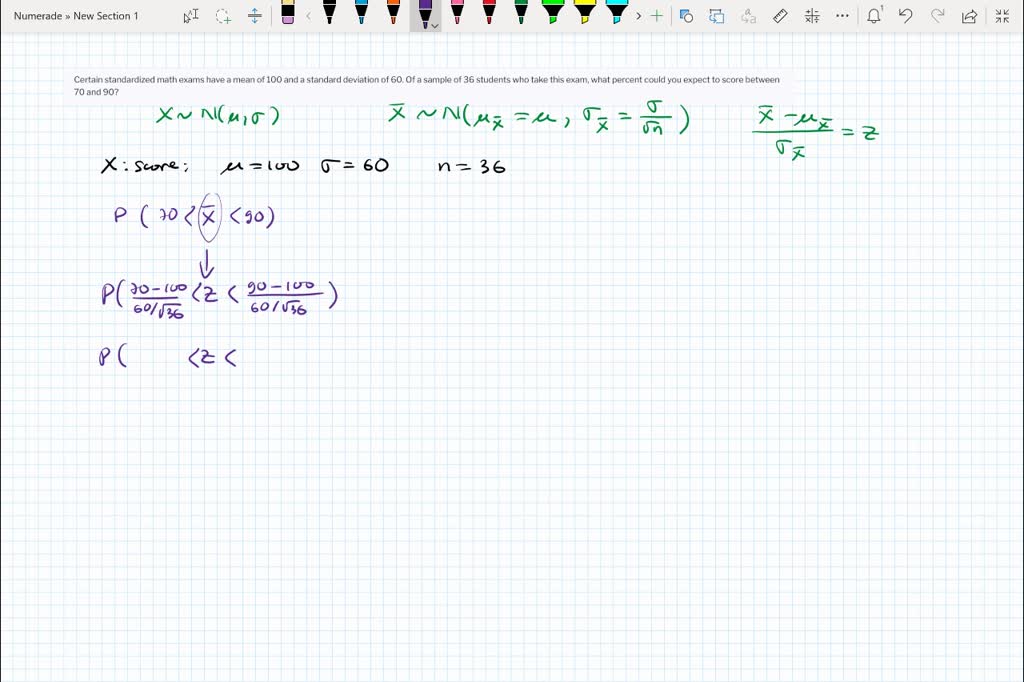 Numerade » New Section 1
Certain standardized math exams have a mean of 100 and a standard deviation of 60. Of a sample of 36 students who take this exam, what percent could you expect to score between
70 and 90?
X ~ N(μ, σ) X̄ ~ N(μ_X̄ = μ, σ_X̄ = σ/√n) (X̄ - μ_X̄)/σ_X̄ = Z
X : score; μ = 100 σ = 60 n = 36
P (70 < X̄ < 90)
↓
P( (70-100)/(60/√36) < Z < (90-100)/(60/√36) )
P( < Z <